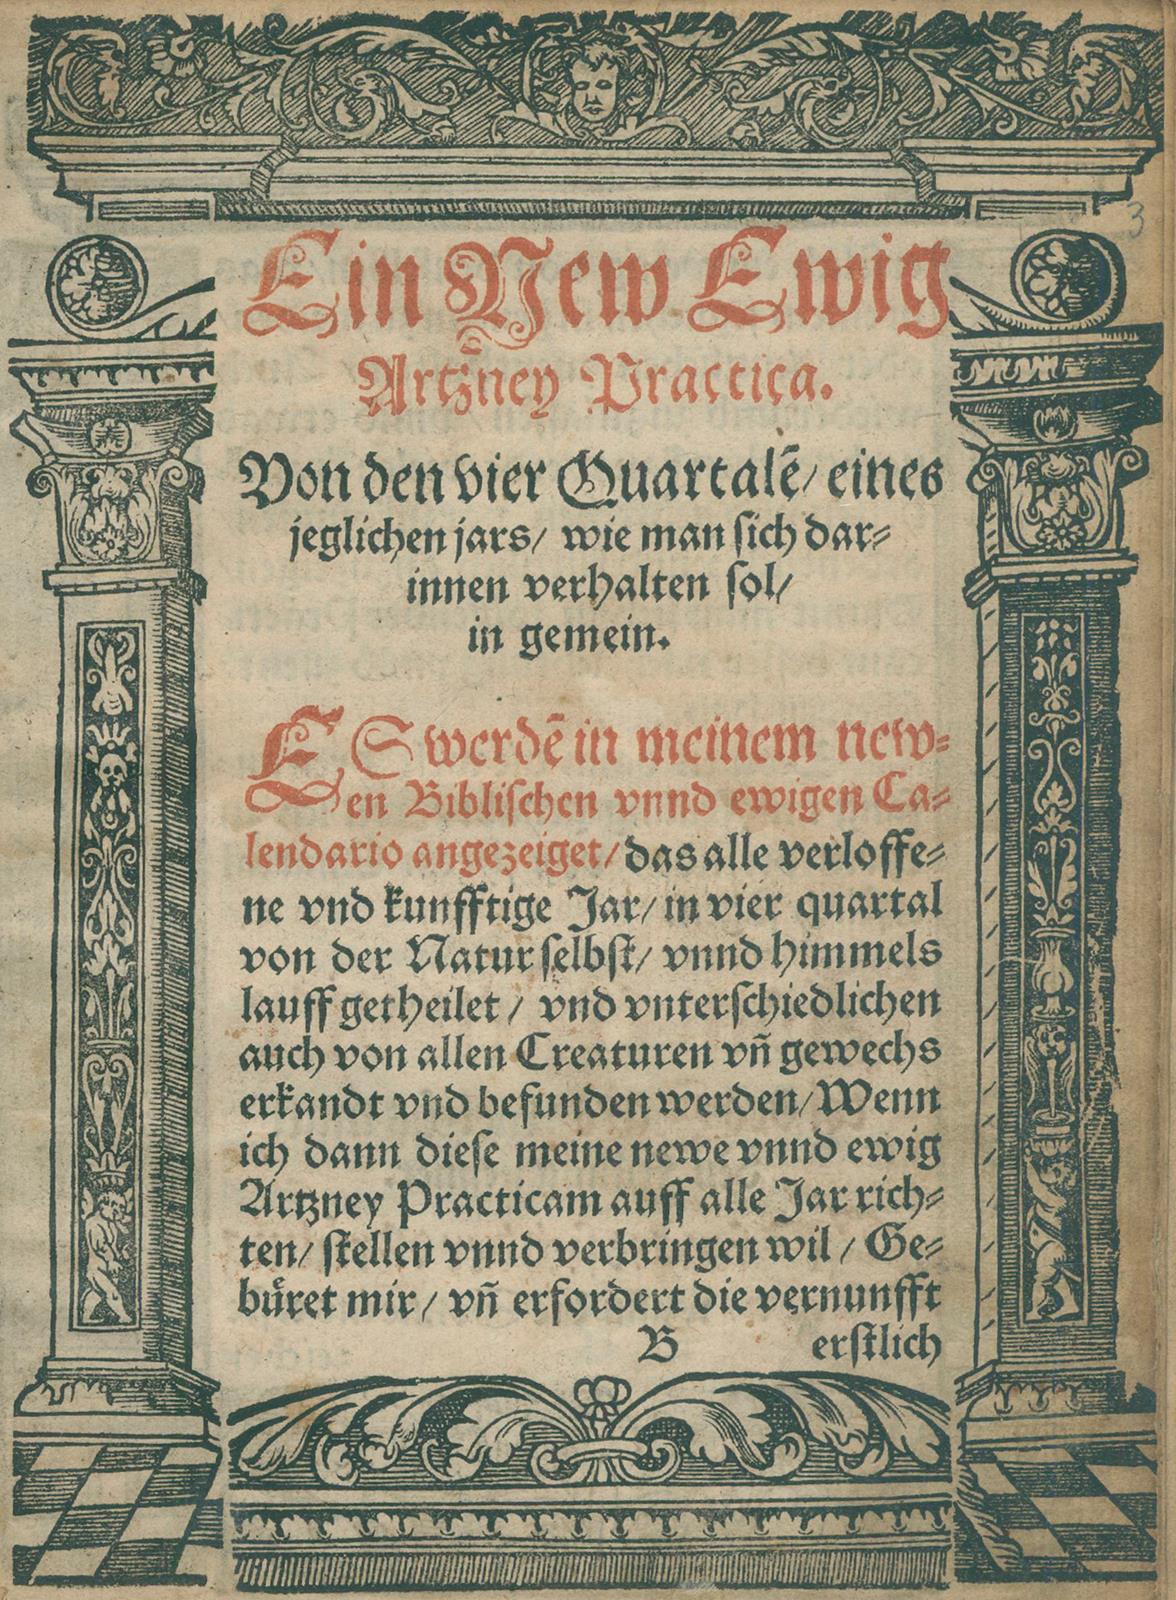 3
Ein New Ewig
Artzney Practica.
Von den vier Quartalẽ/ eines
jeglichen jars/ wie man ſich dar⸗
innen verhalten ſol/
in gemein.
ES werdẽ in meinem new⸗
en Bibliſchen vnnd ewigen Ca⸗
lendario angezeiget/ das alle verloffe⸗
ne vnd kunfftige Jar/ in vier quartal
von der Natur ſelbſt/ vnnd himmels
lauff getheilet / vnd vnterſchiedlichen
auch von allen Creaturen vñ gewechs
erkandt vnd befunden werden/ Wenn
ich dann dieſe meine newe vnnd ewig
Artzney Practicam auff alle Jar rich⸗
ten/ ſtellen vnnd verbringen wil / Ge⸗
buͤret mir / vñ erfordert die vernunfft
B erſtlich